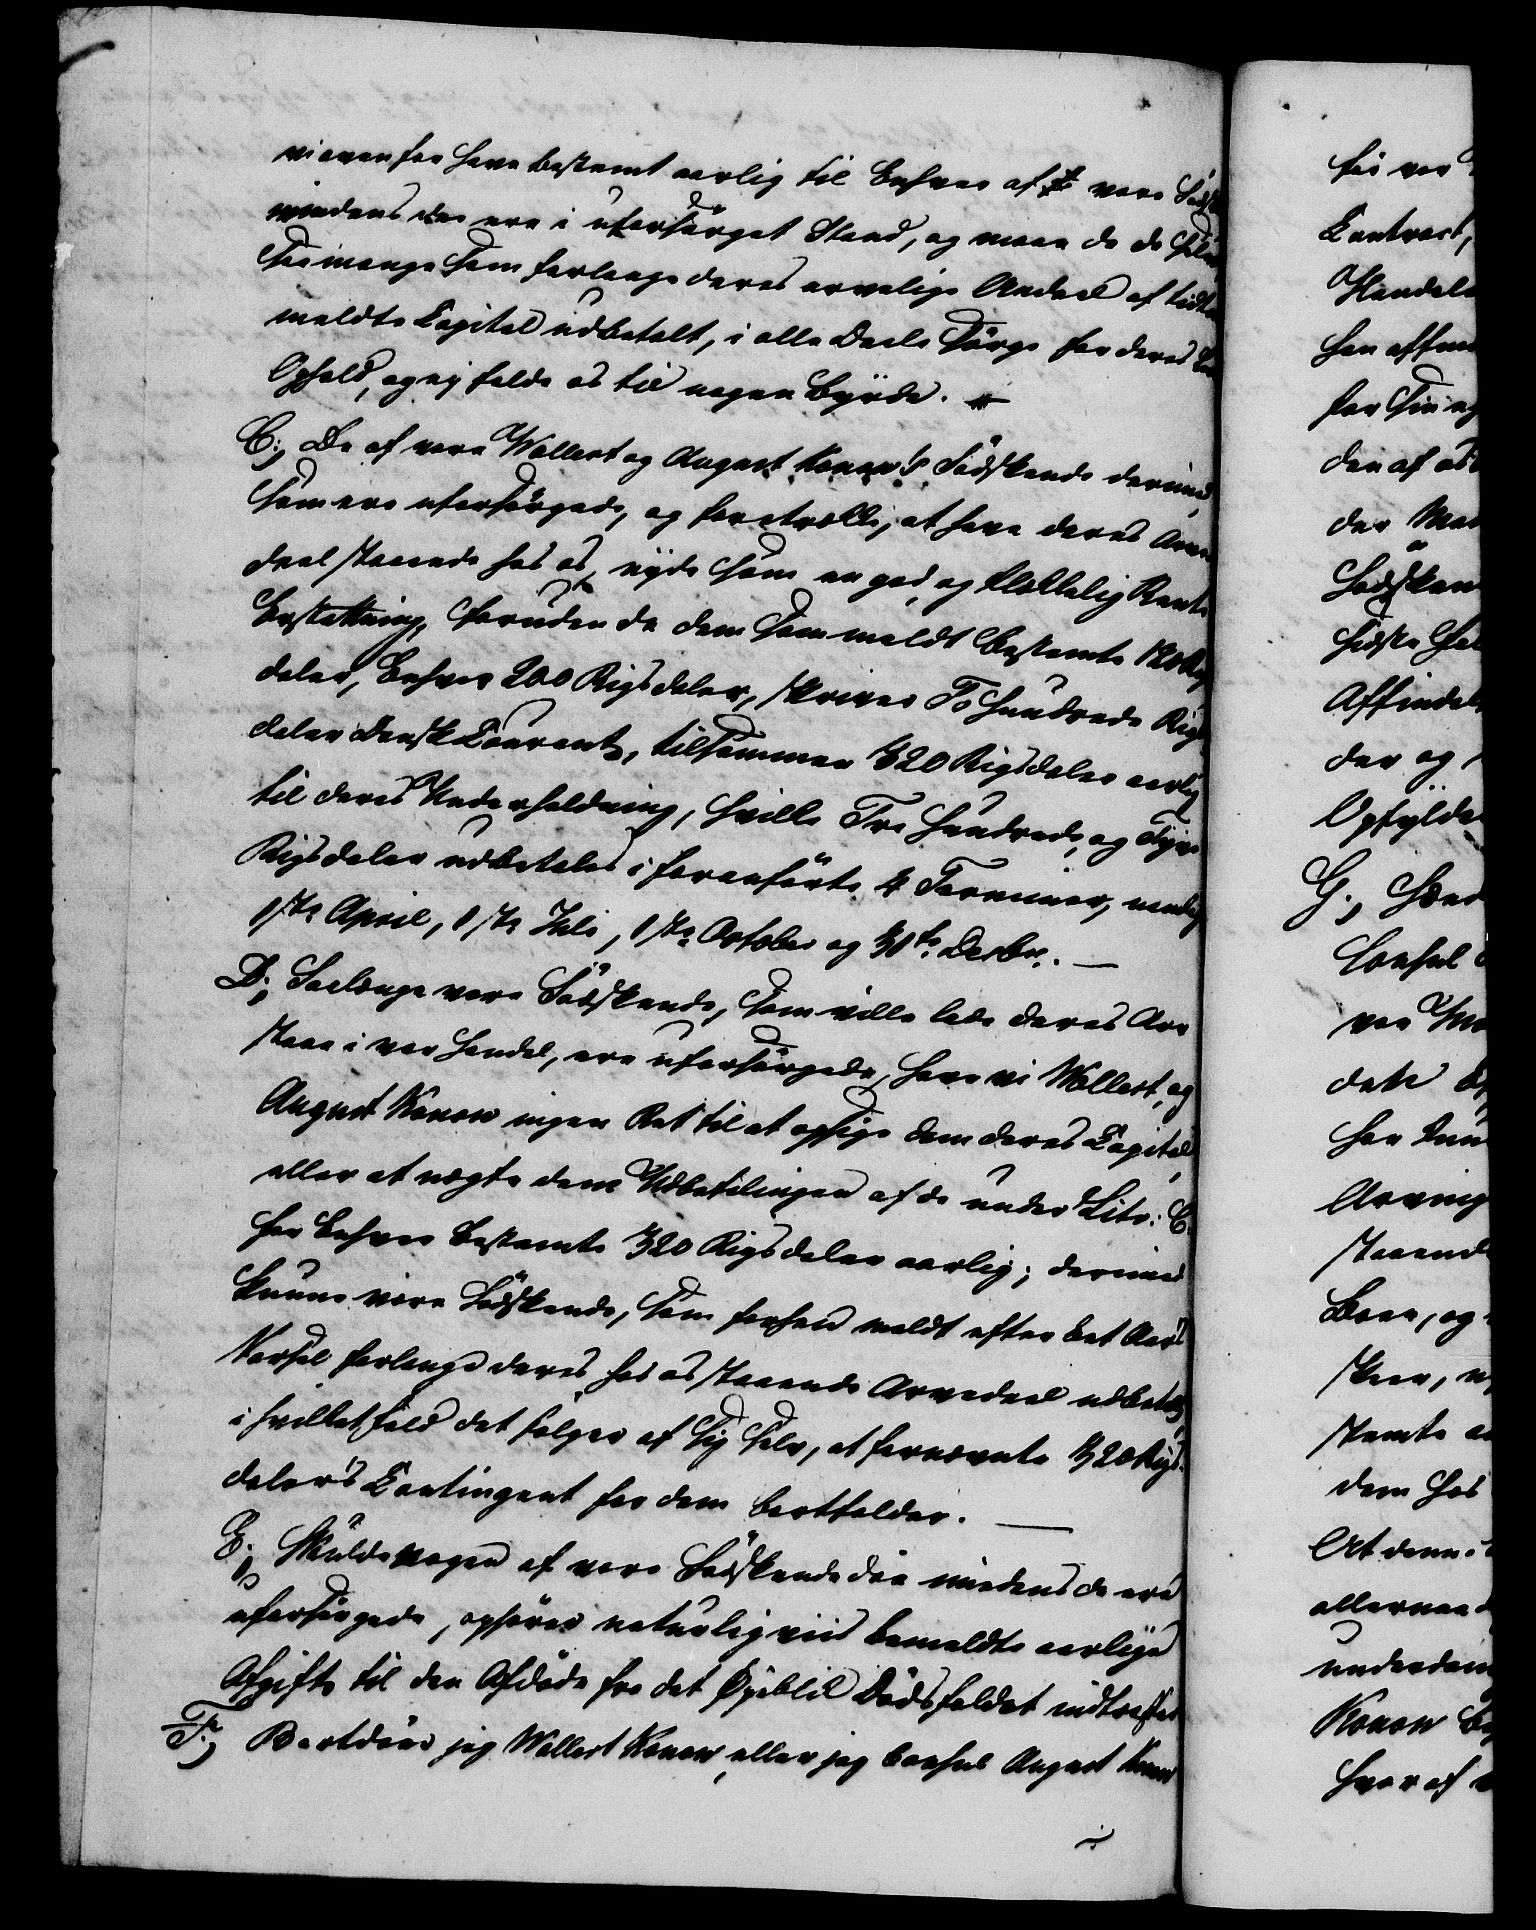 vi ovenfor have bestemt aarlig til Enhver af vore Sødsk
imedens de ere i uforsørget Stand, og maa da de selv
saa mange som forlange deres arvelige Andeel af bidt
meldte Capital udbetalt, i alle Deele sørge for deres
Ophold, og ej falde os til nogen Byrde. —
C., De af vore Wollert og August Konow's Sødskende derimod,
som ere uforsørgede, og foretrække, at have deres Arve
deel staaende hos os, nyde som en god og billig Rente
Erstattning, foruden de dem som meldt bestemte 120 Rigs
daler, Enhver 200 Rigsdaler, skriver To Hundrede Rigs
daler Dansk Courant, tilsammen 320 Rigsdaler aarlig
til deres Underholdning, hvilke Tre Hundrede og Tyve
Rigsdaler udbetales i foranførte 4 Terminer, nemlig
1ste April, 1ste Juli, 1ste October og 31te Decbr. —
D., Saalænge vore Sødskende, som ville lade deres Arv
staae i vor Handel, ere uforsørgede, have vi Wollert og
August Konow ingen Ret til at opsige dem deres Capital
eller at nægte dem Udbetalingen af de under Litr: C.
for Enhver bestemte 320 Rigsdaler aarlig; derimod
kunne vore Sødskende, som forhen meldt efter eet Aars
Varsel forlange deres hos os staaende Arvedeel udbetalt,
i hvilket Fald det følger af sig selv, at fornævnte 320 Rigs-
daler's Contingent for dem bortfalder. —
E., Skulde nogen af vore Sødskende døe imedens de ere
uforsørgede, ophører naturligviis bemeldte aarlige
Afgift til den Afdøde fra det Øyeblik Dødsfaldet indtreffer
F., Bortdøer jeg Wollert Konow, eller jeg Consul August Konow
for vor
Contract,
Handels
han
for
den af os
der
Sødsken
sidste
Affindel
der og
Opfylde
G.,
Consul
vor
dett
har
Arving
staaend
Boen, og
skeer,
stemte
dem hos
At denne
allernaa
underdan
Konow
hvoraf